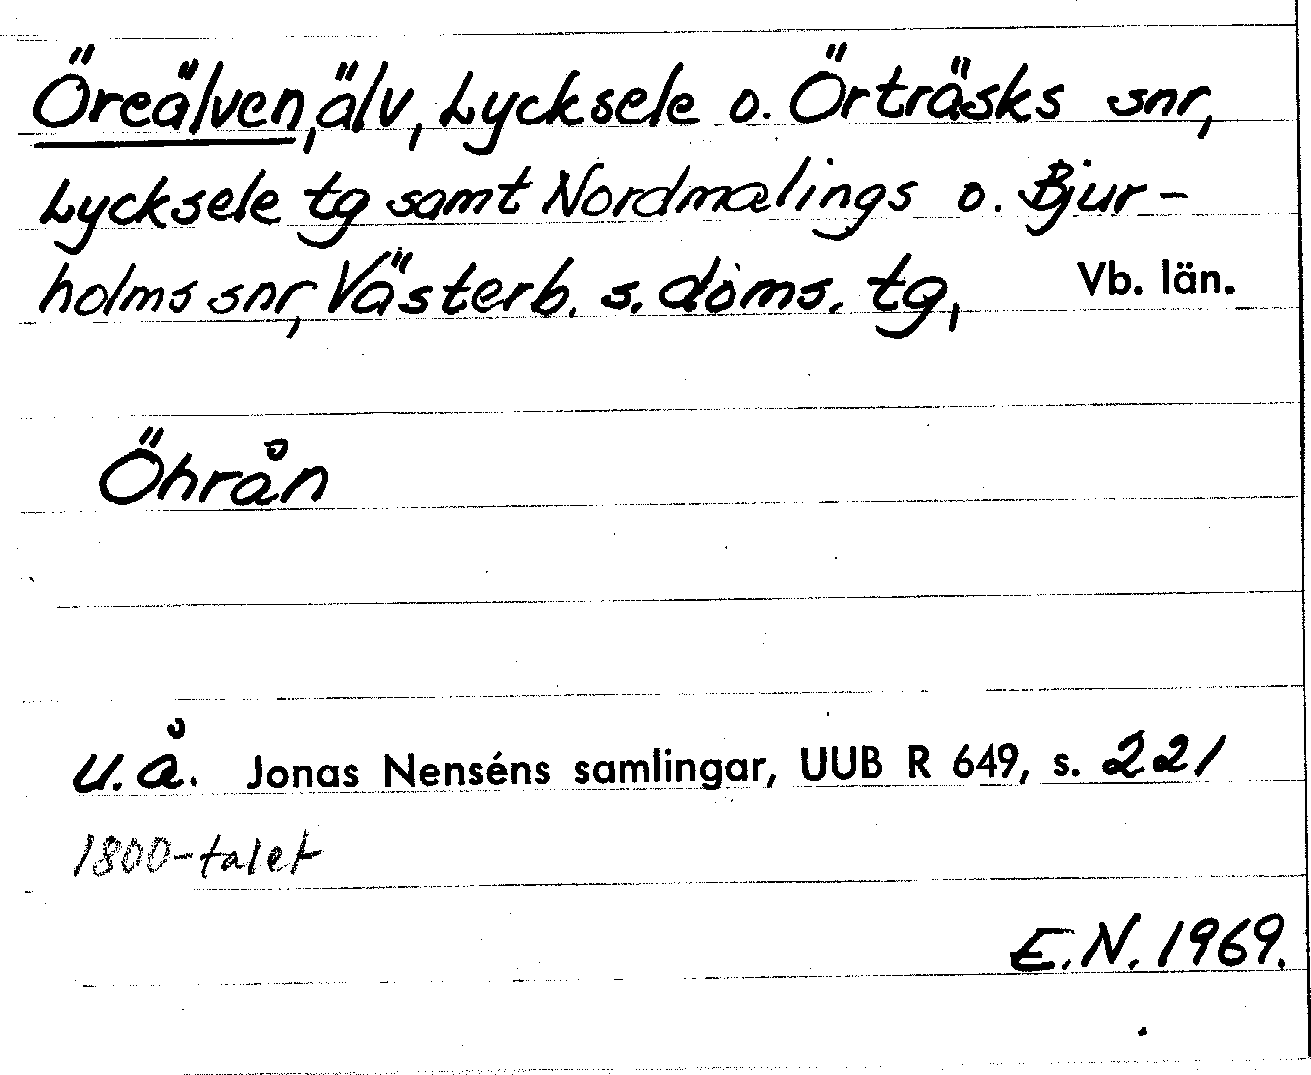 Öreälven, älv, Lycksele o. Örträsks snr,
Lycksele tg samt Nordmalings o. Bjur-
holms snr, Västerb. s. doms. tg, Vb. län.
Öhrån
u.å. Jonas Nenséns samlingar, UUB R 649, s. 221
1800-talet
E.N. 1969.